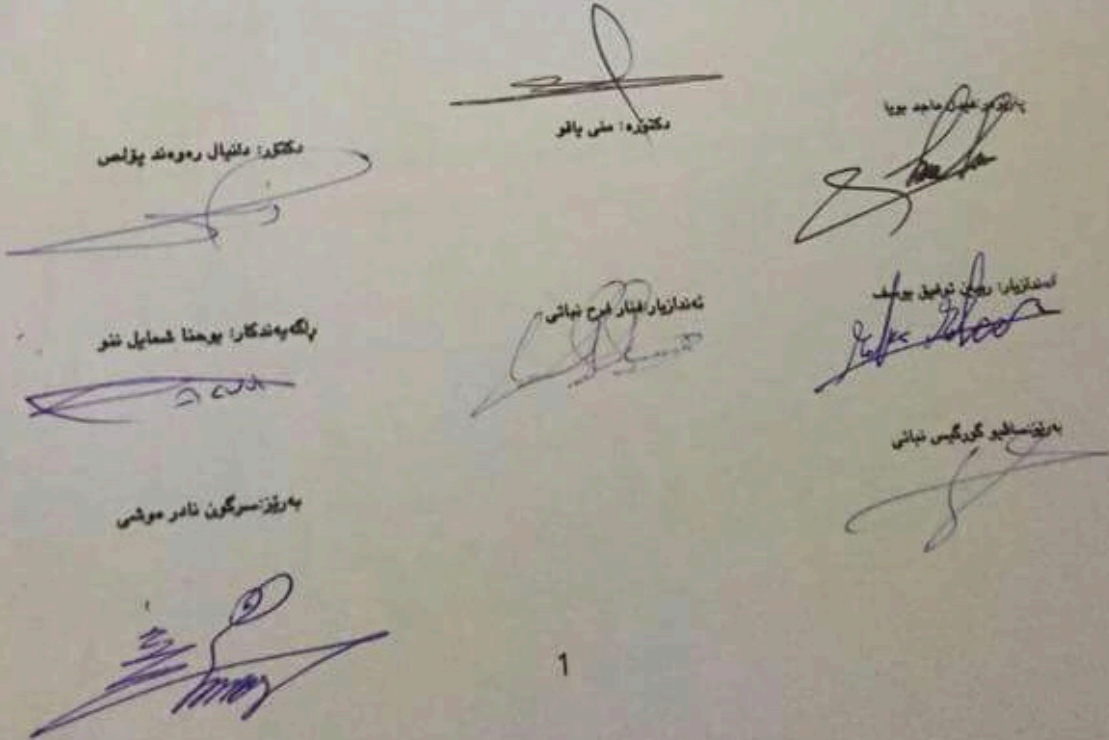 دکتۆرە: منی یاقو
ماجد بویا
دکتۆر: دانیال رەوەند پۆلص
ئەندازیار: ریبین توفیق یوسف
ئەندازیار: فنار فرح نباتی
راگەیەندکار: یوحنا شمایل ننو
بەرێز: سافیو گورگیس نباتی
بەرێز: سرگون نادر موشی
1